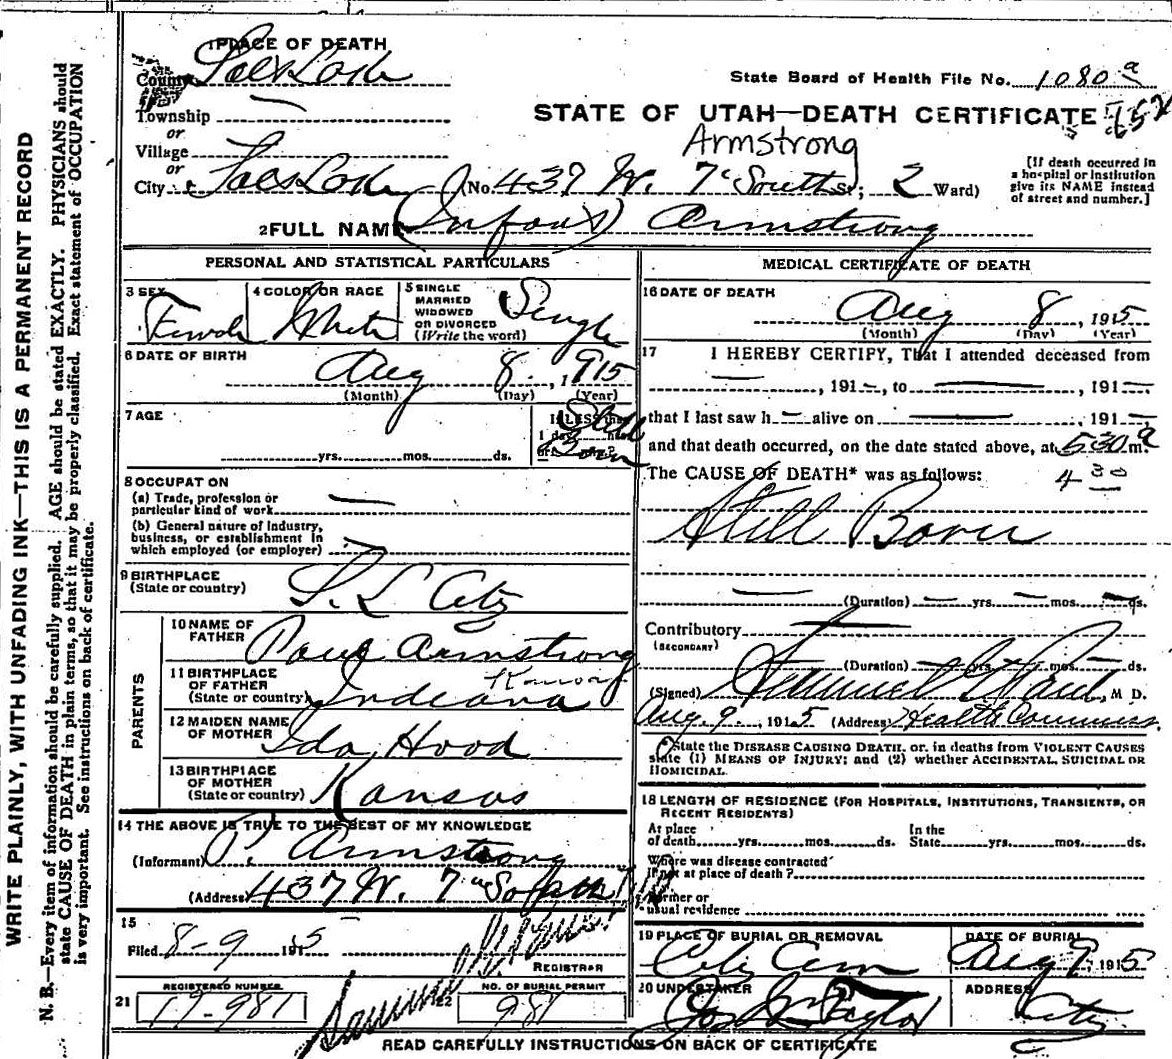 WRITE PLAINLY, WITH UNFADING INK—THIS IS A PERMANENT RECORD
N. B.—Every item of information should be carefully supplied. AGE should be stated EXACTLY. PHYSICIANS should
state CAUSE OF DEATH in plain terms, so that it may be properly classified. Exact statement of OCCUPATION
is very important. See instructions on back of certificate.
1 PLACE OF DEATH
County Salt Lake
State Board of Health File No. 1080 a
Township —
STATE OF UTAH—DEATH CERTIFICATE
or
Village
Armstrong
or
City Salt Lake (No. 437 W. 7" South St; 2 Ward)
[If death occurred in
a hospital or institution
give its NAME instead
of street and number.]
2 FULL NAME (Infant) Armstrong
PERSONAL AND STATISTICAL PARTICULARS
3 SEX Female
4 COLOR OR RACE White
5 SINGLE
MARRIED
WIDOWED
OR DIVORCED
(Write the word) Single
6 DATE OF BIRTH
Aug 8, 1915
(Month) (Day) (Year)
7 AGE
If LESS than
1 day hrs
or min?
Still Born
yrs. mos. ds.
8 OCCUPATION
(a) Trade, profession or
particular kind of work —
(b) General nature of Industry,
business, or establishment in
which employed (or employer)
9 BIRTHPLACE
(State or country) S. L City
PARENTS
10 NAME OF
FATHER Paul Armstrong
11 BIRTHPLACE
OF FATHER
(State or country) Indiana Kansas
12 MAIDEN NAME
OF MOTHER Ida Hood
13 BIRTHPLACE
OF MOTHER
(State or country) Kansas
14 THE ABOVE IS TRUE TO THE BEST OF MY KNOWLEDGE
(Informant) P. Armstrong
(Address) 437 W. 7" South
15
Filed 8-9 1915
REGISTRAR
21 REGISTERED NUMBER
17-981
22 NO. OF BURIAL PERMIT
981
MEDICAL CERTIFICATE OF DEATH
16 DATE OF DEATH
Aug 8, 1915
(Month) (Day) (Year)
17 I HEREBY CERTIFY, That I attended deceased from
—, 191—, to —, 191—
that I last saw h— alive on —, 191—
and that death occurred, on the date stated above, at 530 a m.
The CAUSE OF DEATH* was as follows: 4 30
Still Born
— (Duration) — yrs. — mos. — ds.
Contributory —
(SECONDARY)
(Duration) — yrs. — mos. — ds.
(Signed) Samuel G Paul, M D.
Aug. 9, 1915 (Address) Health Commiss.
*State the DISEASE CAUSING DEATH, or, in deaths from VIOLENT CAUSES
state (1) MEANS OF INJURY; and (2) whether ACCIDENTAL, SUICIDAL OR
HOMICIDAL.
18 LENGTH OF RESIDENCE (FOR HOSPITALS, INSTITUTIONS, TRANSIENTS, OR
RECENT RESIDENTS)
At place
of death yrs. mos. ds.
In the
State yrs. mos. ds.
Where was disease contracted
if not at place of death?
Former or
usual residence
19 PLACE OF BURIAL OR REMOVAL
City Cem
DATE OF BURIAL
Aug 9, 1915
20 UNDERTAKER
Jos Wm Taylor
ADDRESS
City
READ CAREFULLY INSTRUCTIONS ON BACK OF CERTIFICATE